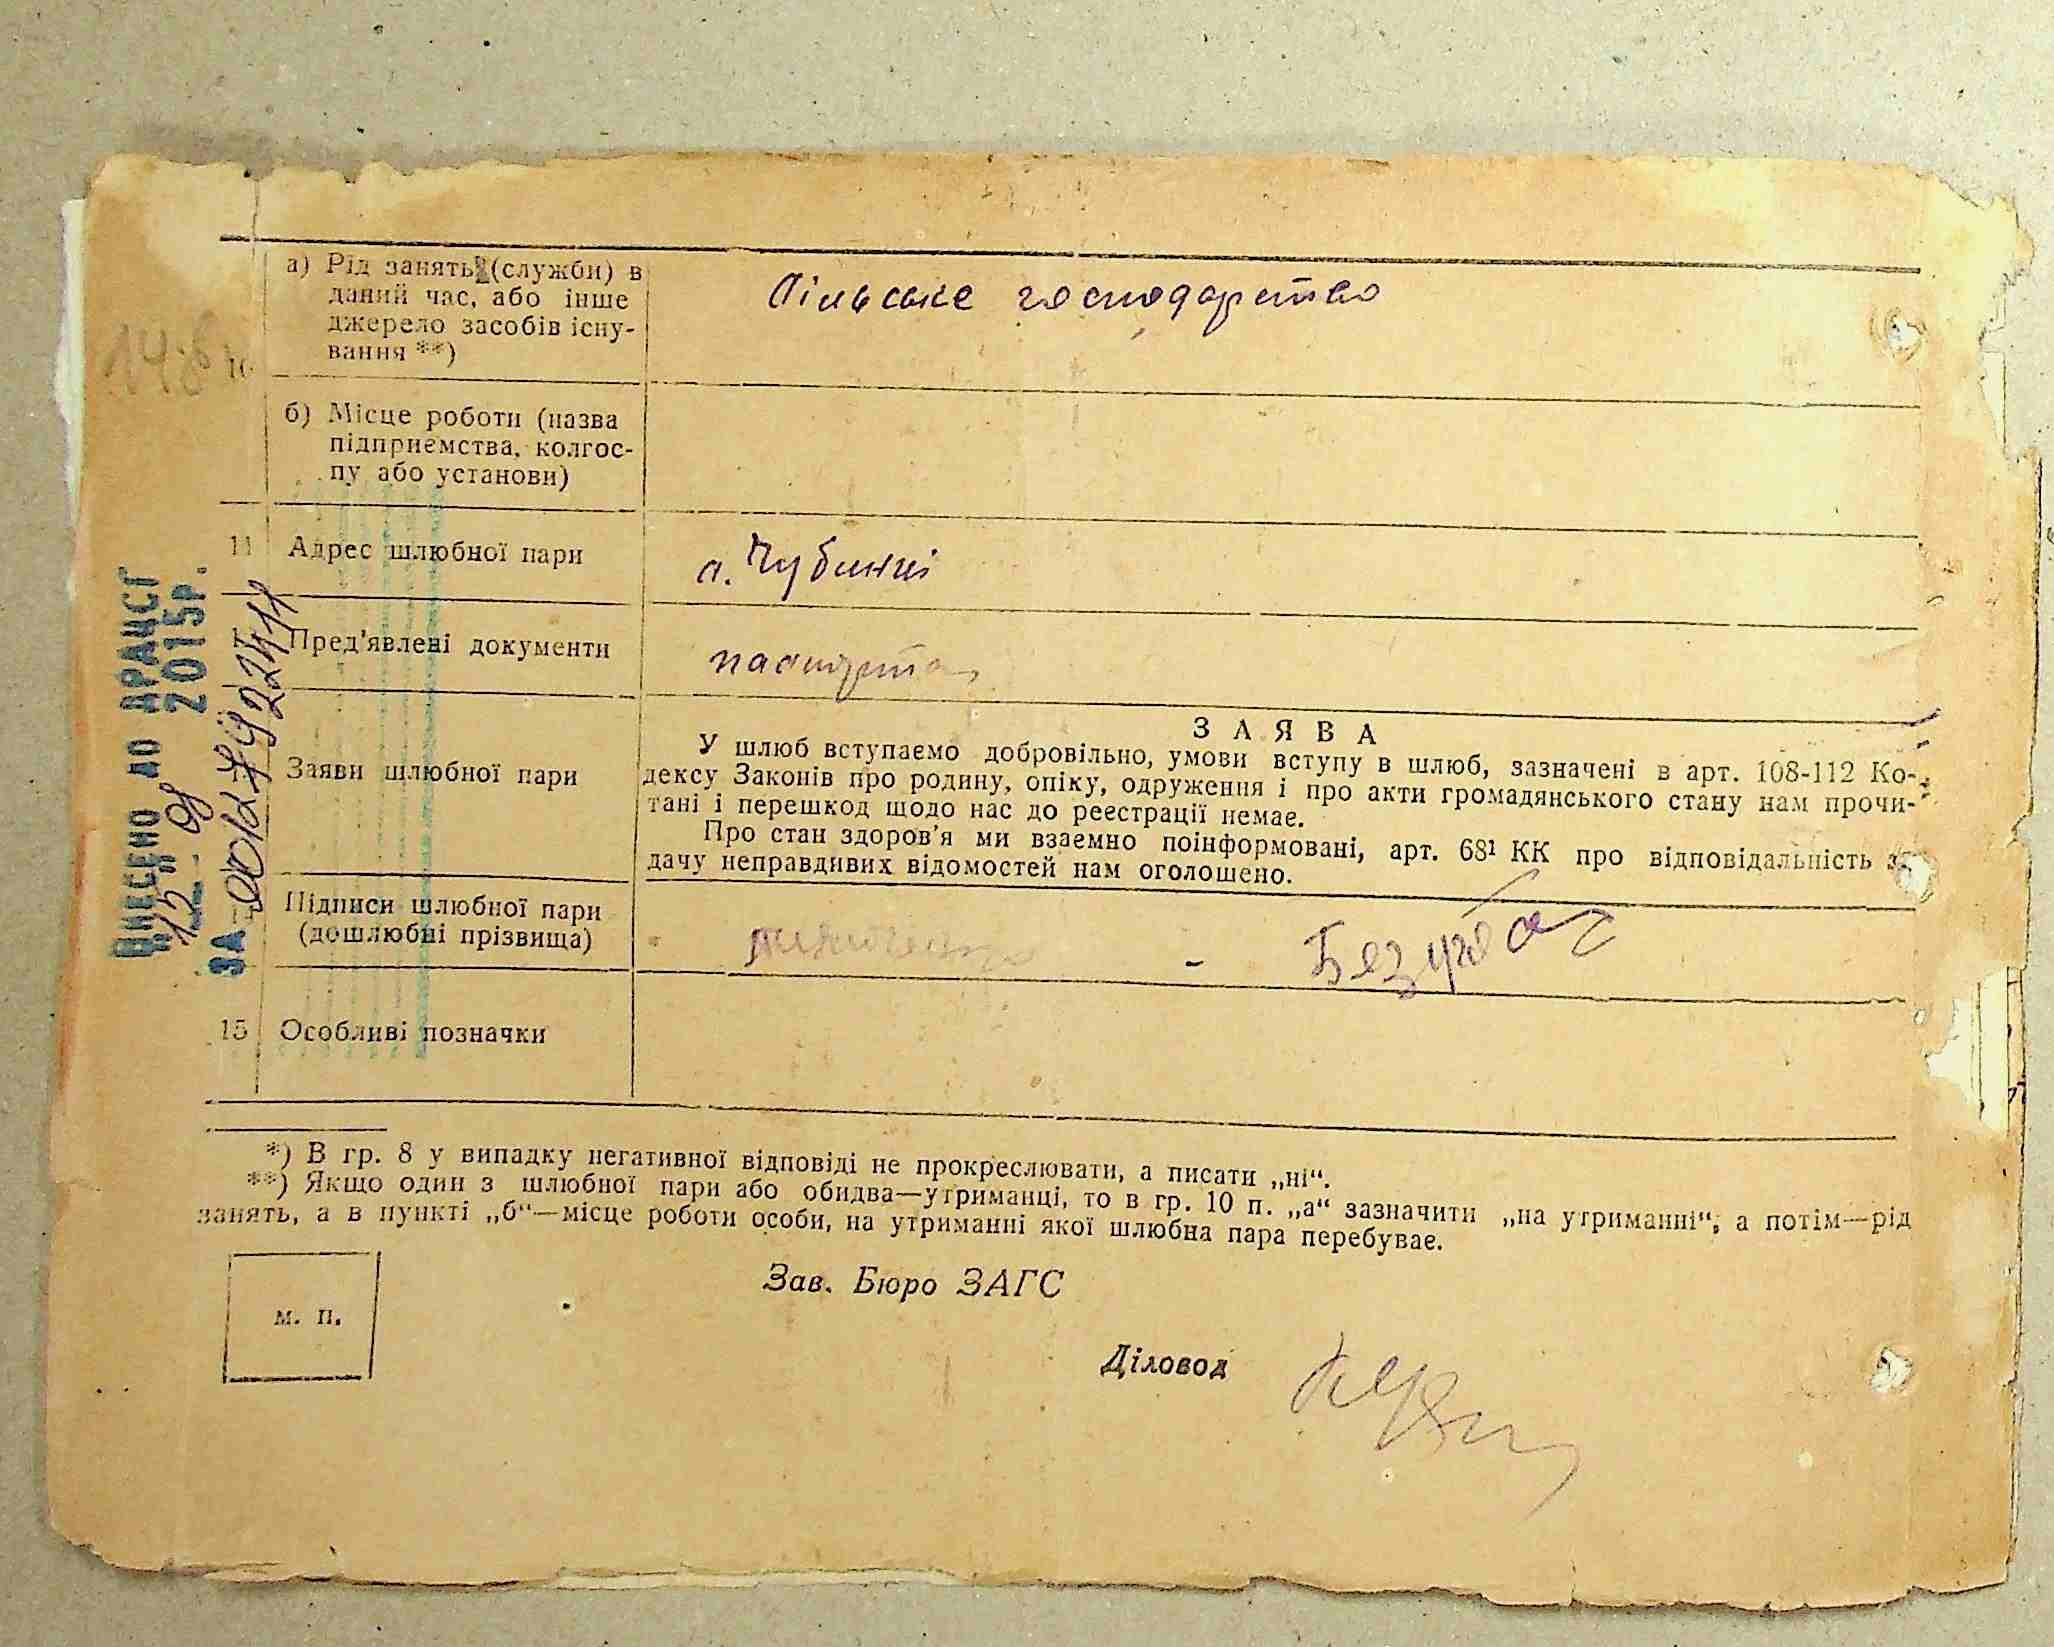 а) Рід занять (служби) в
даний час, або інше
джерело засобів існу-
вання **)
Сільське господарство
148
10
б) Місце роботи (назва
підприємства, колгос-
пу або установи)
11 Адрес шлюбної пари
с. Чубинці
Пред'явлені документи
паспорта
Заяви шлюбної пари
ЗАЯВА
У шлюб вступаємо добровільно, умови вступу в шлюб, зазначені в арт. 108-112 Ко-
дексу Законів про родину, опіку, одруження і про акти громадянського стану нам прочи-
тані і перешкод щодо нас до реєстрації немає.
Про стан здоров'я ми взаємно поінформовані, арт. 68¹ КК про відповідальність за
дачу неправдивих відомостей нам оголошено.
Підписи шлюбної пари
(дошлюбні прізвища)
15 Особливі позначки
*) В гр. 8 у випадку негативної відповіді не прокреслювати, а писати „ні“.
**) Якщо один з шлюбної пари або обидва—утриманці, то в гр. 10 п. „а“ зазначити „на утриманні“, а потім—рід
занять, а в пункті „б“—місце роботи особи, на утриманні якої шлюбна пара перебуває.
м. п.
Зав. Бюро ЗАГС
Діловод
Внесено до ДРАЦСГ
„12“ 08 2015р.
ЗА